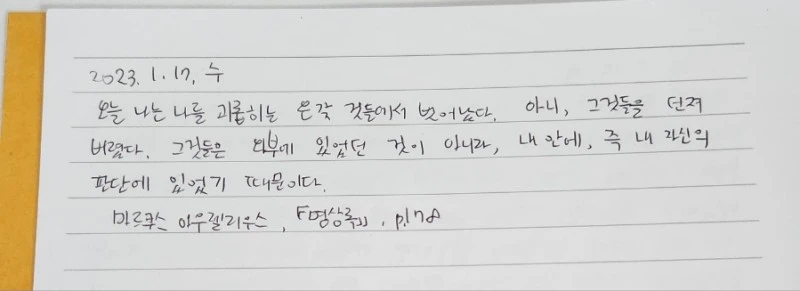 2023. 1. 17, 수
오늘 나는 나를 괴롭히는 온갖 것들에서 벗어났다. 아니, 그것들을 던져
버렸다. 그것들은 외부에 있었던 것이 아니라, 내 안에, 즉 내 자신의
판단에 있었기 때문이다.
마르쿠스 아우렐리우스, 『명상록』, p.178